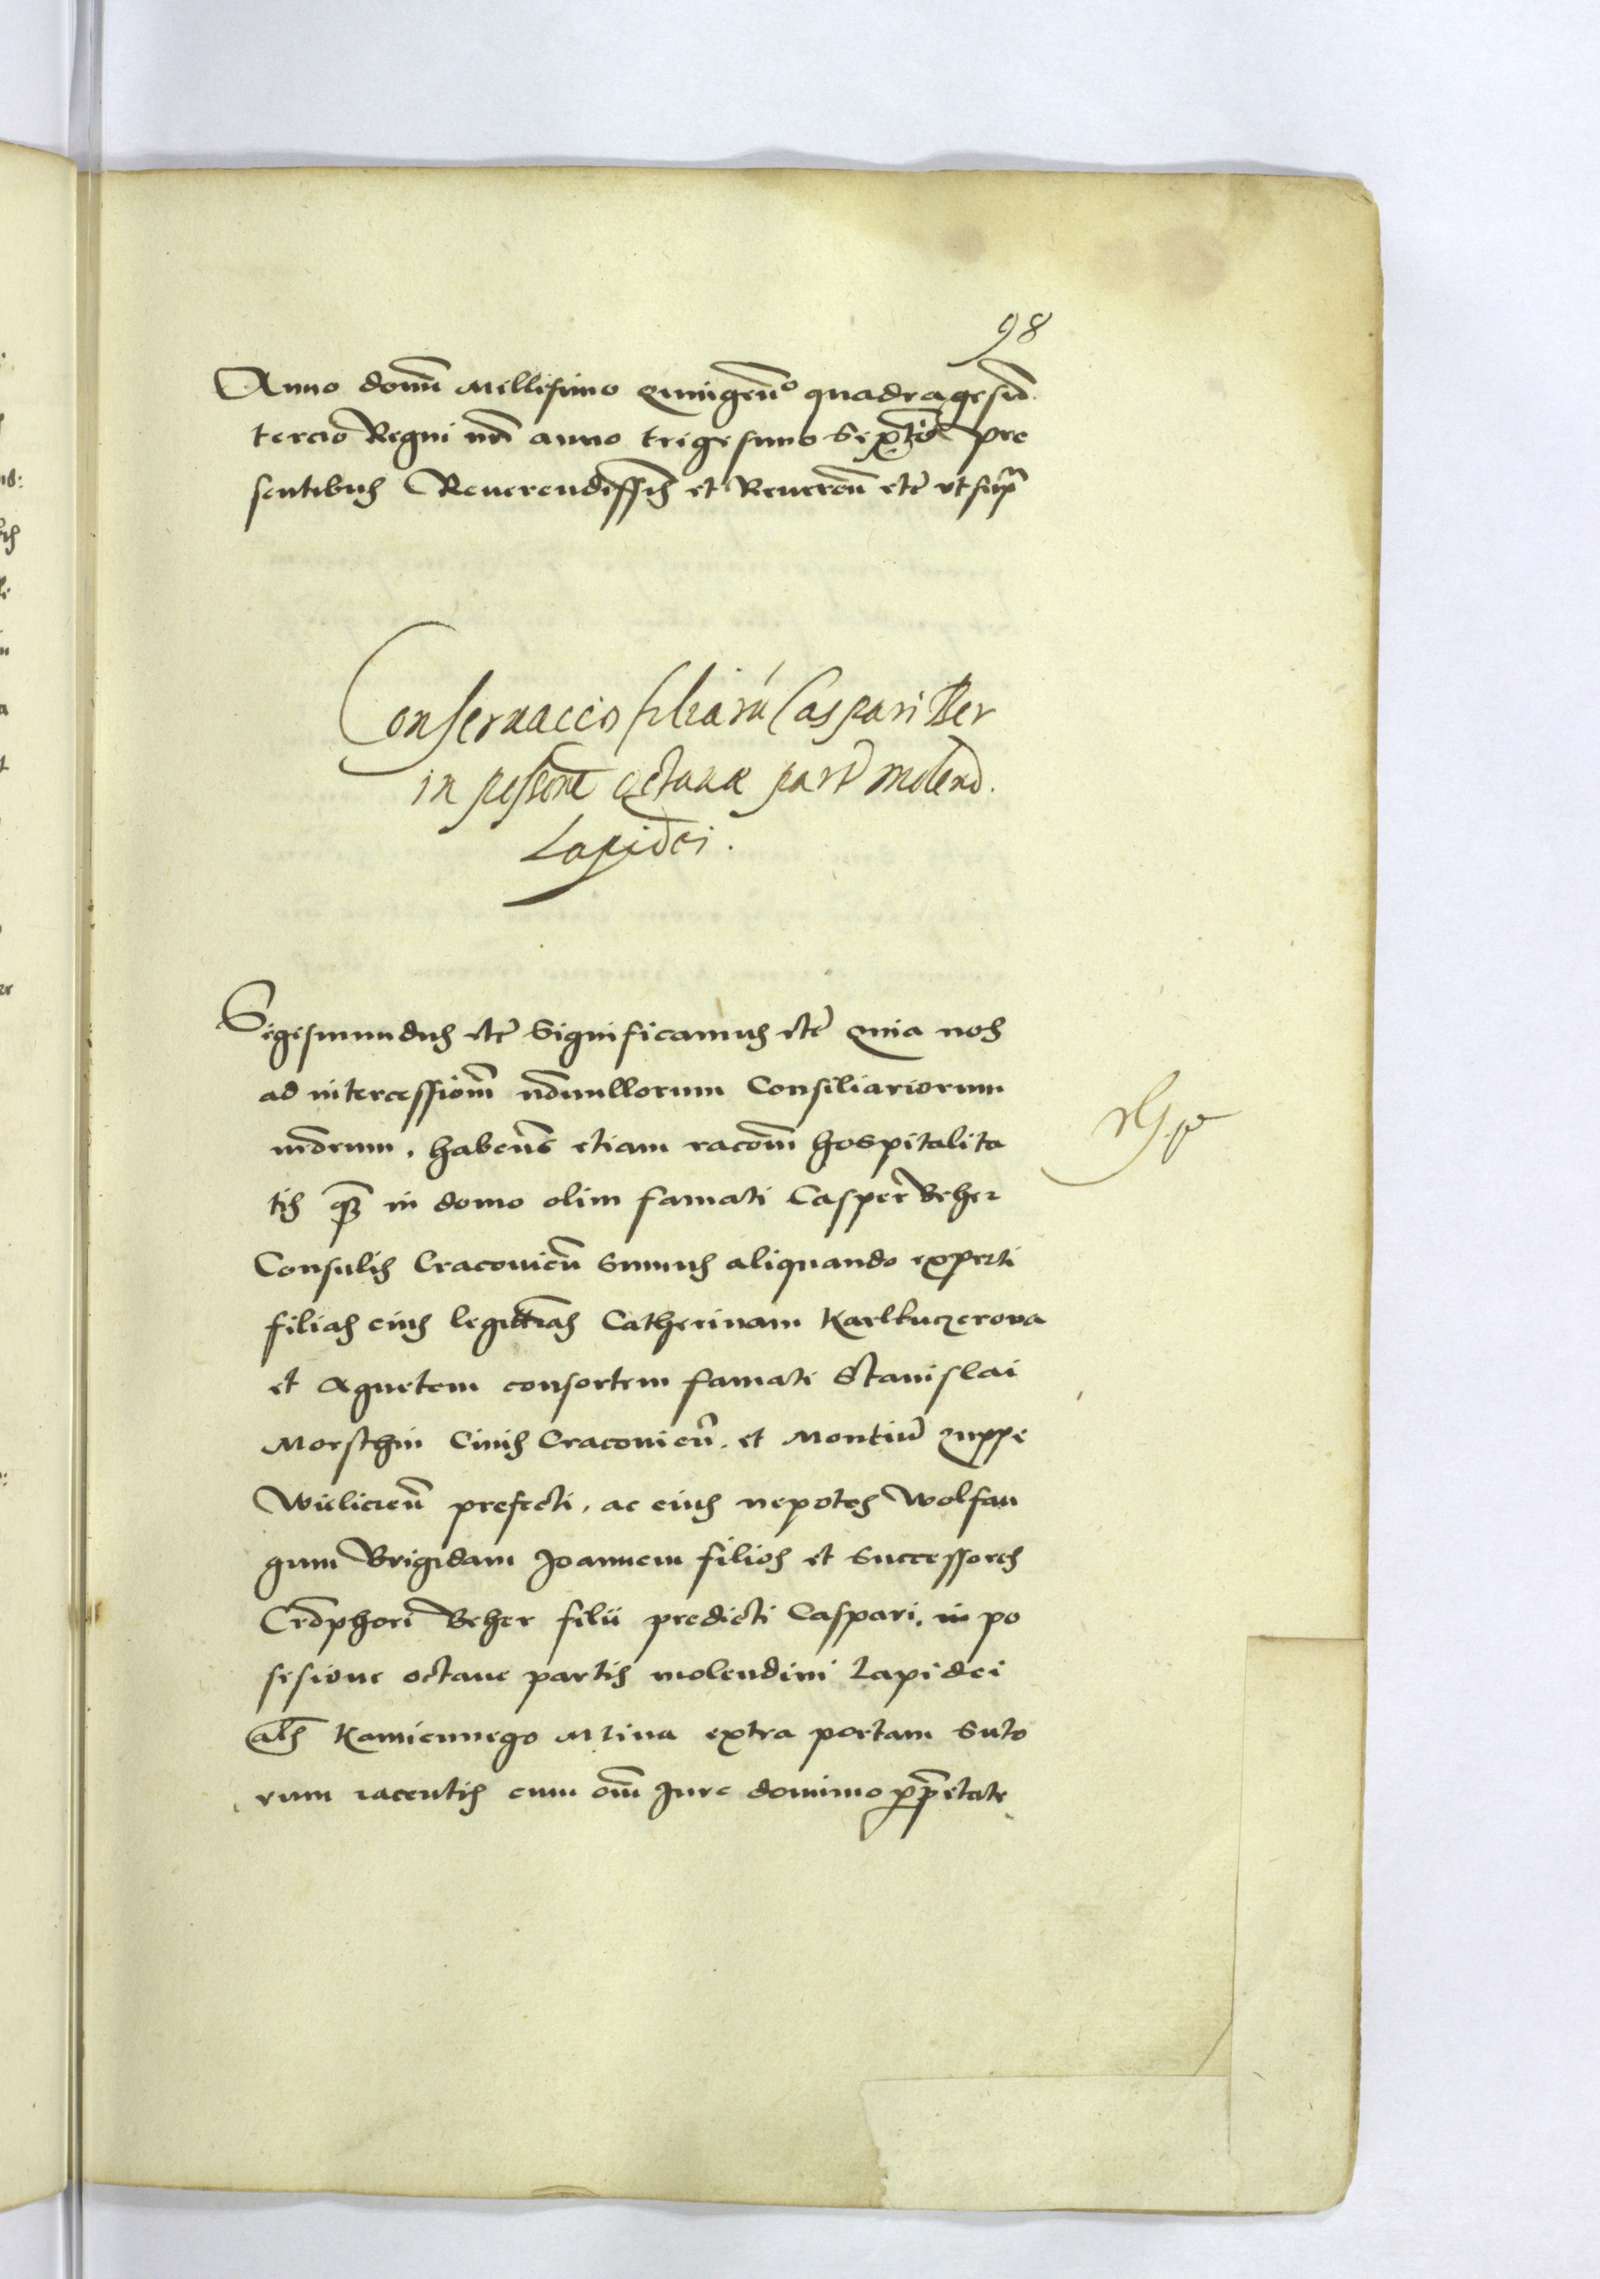 98
Anno domī Millesimo Quīngen̄o quadragesīo
tercio Regni nr̄i anno trigesimo Septīo pre
sentibus Reuerendissīs et Reueren̄ etc̄ vt supra
Conseruacio filiarū Caspari Ber
in possesione octauæ part̄ molend.
Lapidei.
Sigismundus etc̄ Significamus etc̄ Quia nos
ad intercessionē nōnullorum Consiliariorum
nr̄orum. habentes etiam racōnē hospitalita
tis quā in domo olim famati Casper Beher
Consulis Cracouien̄ sumus aliquando experti
filias eius legittimas Catherinam Karlkuczerova
et Agnetem consortem famati Stanislai
Morschtin Ciuis Cracouien̄. et Montiū zuppe
Wielicien̄ prefecti. ac eius nepotes Wolfan
gum Brigidam Joannem filios et successores
Cr̄ophori Beher filii predicti Caspari. in po
sesione octaue partis molendini Lapidei
als Kamiennego Mlina extra portam Suto
rum iacentis cum om̄i Jure dominio propr̄ietate